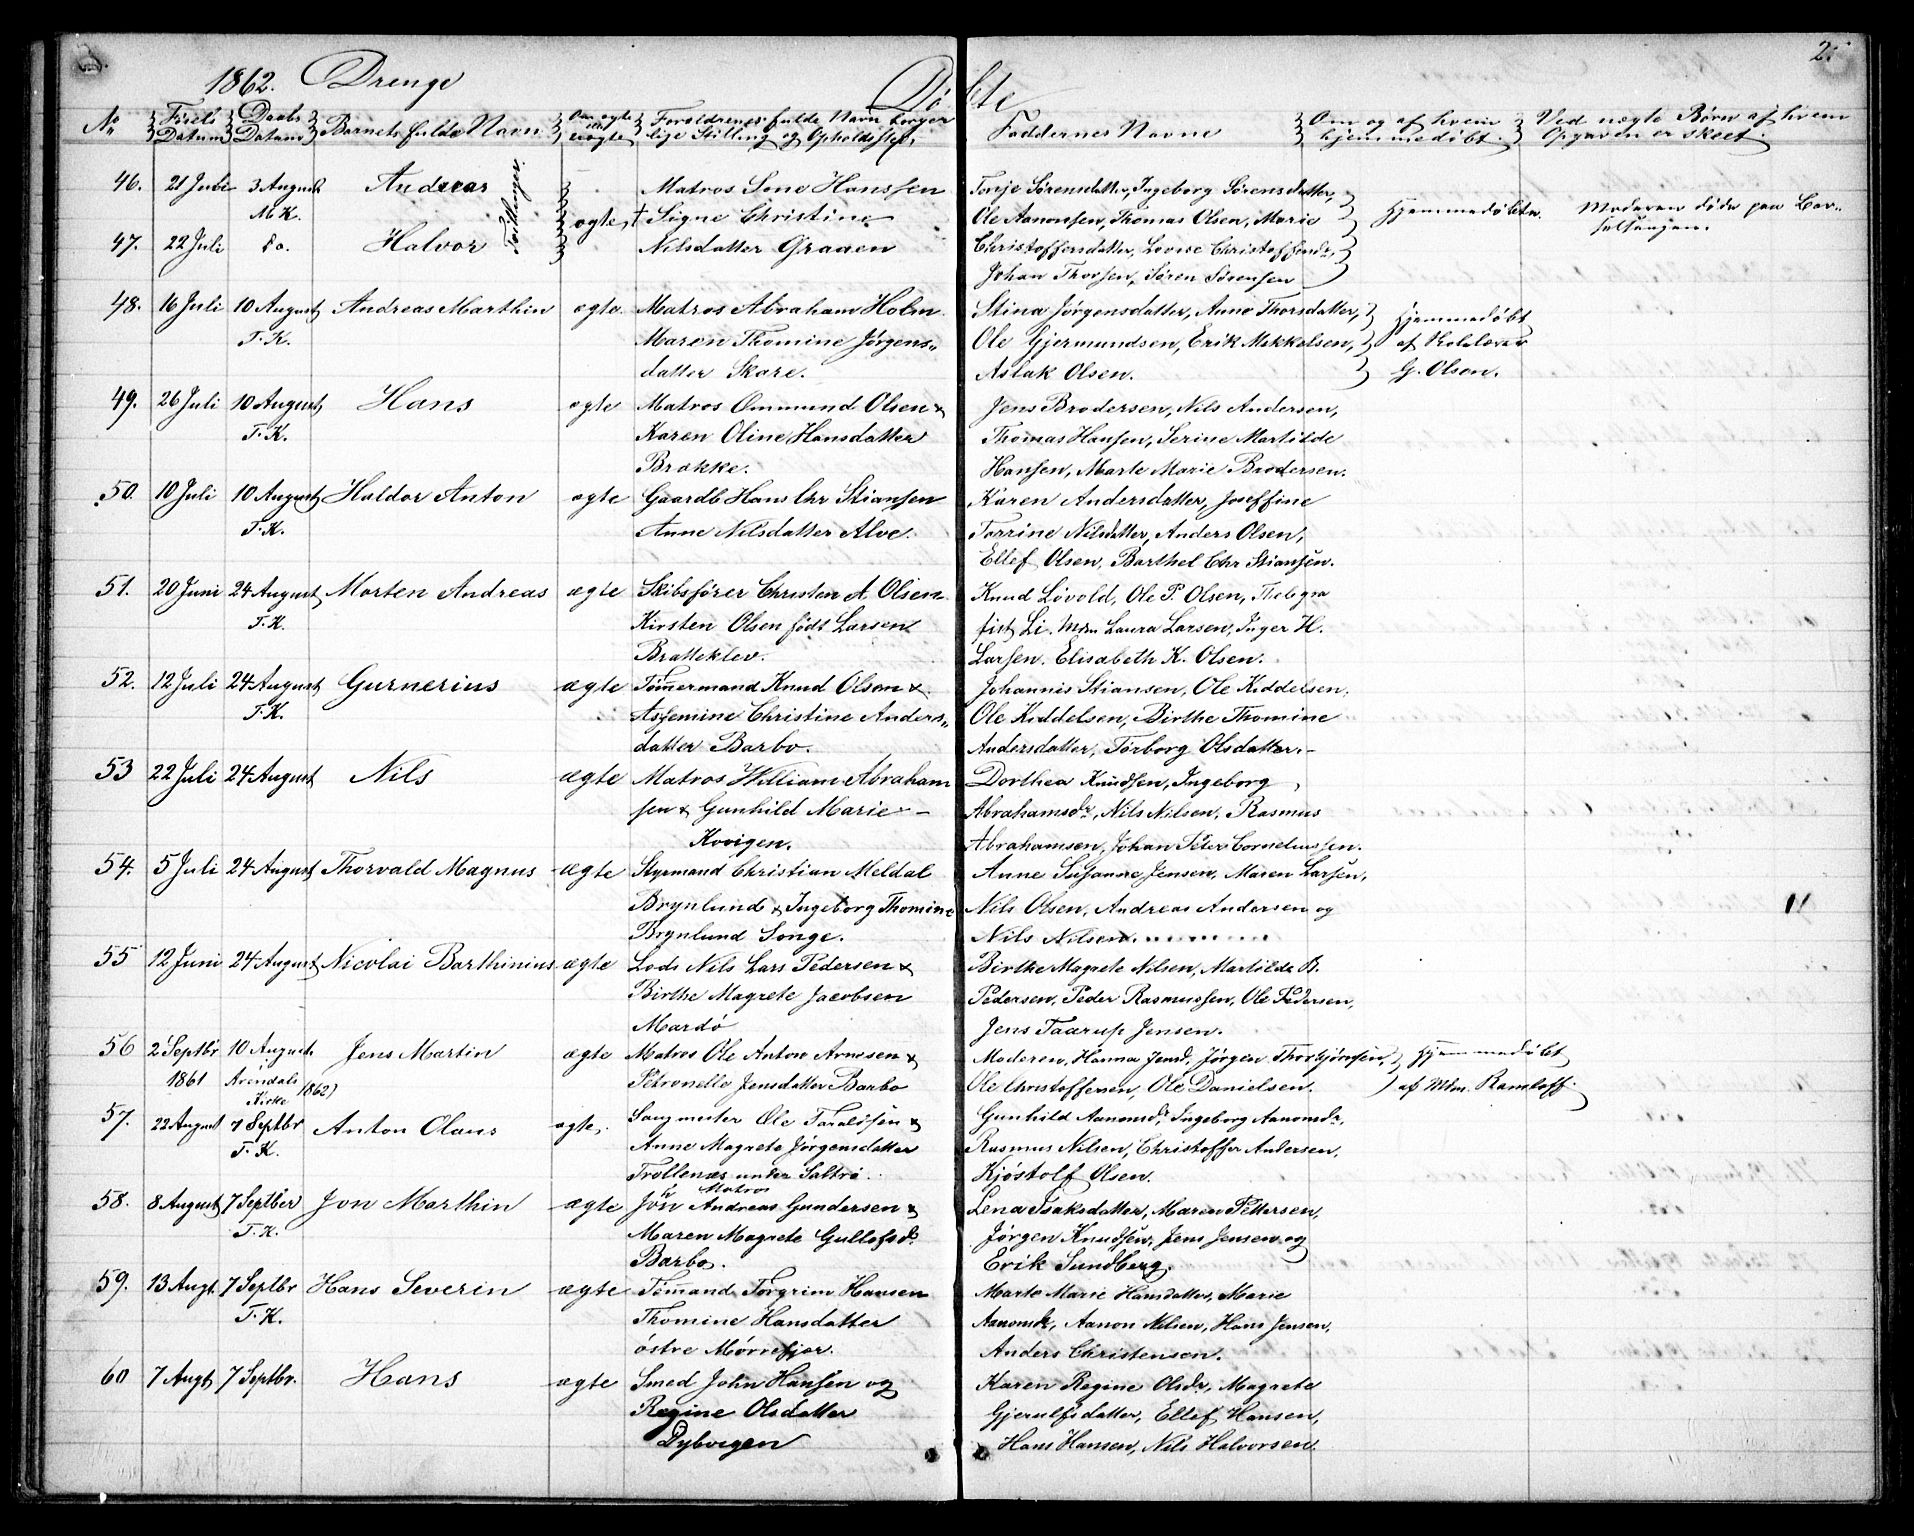 2.
1862. Drenge Döbte
No Födels Datum Daabs Datum Barnets fulde Navn Om ægte uægte Forældrenes fulde Navn borger lige Stilling og Opholdssted. Faddernes Navne Om og af hvem hjemmedøbt. Ved uægte Børn af hvem Opgaven er skeet.
46. 21 Juli 3 August Andreas Matros Sone Hanssen Tonje Sørensdatter, Ingeborg Sörensdatter,
M K. Tvillinger. ægte, † Signe Christine Ole Aanonsen, Thomas Olsen, Marie Hjemmedøbte. Moderen døde paa Bar-
47. 22 Juli do. Halvor Nilsdatter Graaen Christoffersdatter, Lovise Christoffersdr, selsengen.
Johan Thorsen, Sören Sörensen
48. 16 Juli 10 August Andreas Marthin ægte Matros Abraham Holm Stina Jørgensdatter, Anne Thorsdatter, Hjemmedöbt
T. K. Maren Thomine Jørgens„ Ole Gjermundsen, Erik Mikkelsen, af Skolelærer
datter Skare. Aslak Olsen. G. Olsen.
49. 26 Juli 10 August Hans ægte Matros Ommund Olsen & Jens Brodersen, Nils Andersen,
T. K. Karen Oline Hansdatter Thomas Hansen, Serine Martilde
Brække. Hansen, Marte Marie Brodersen.
50. 10 Juli 10 August Haldor Anton ægte Gaardb Hans Chr Stiansen Karen Andersdatter, Joseffine
T. K. Anne Nilsdatter Alve. Torrine Nilsdatter, Anders Olsen,
Ellef Olsen, Barthel Chr Stiansen.
51. 20 Juni 24 August Morten Andreas ægte Skibsfører Christen A. Olsen Knud Lövold, Ole P. Olsen, Thelegra
T. K. Kirsten Olsen født Larsen fist Li. Mdm Laura Larsen, Inger H.
Bratteklev. Larsen. Elisabeth K. Olsen.
52. 12 Juli 24 August Gurnerius ægte Tømmermand Knud Olsen & Johannis Stiansen, Ole Kiddelsen,
T. K. Assemine Christine Anders„ Ole Kiddelsen, Birthe Thomine
datter Barbo. Andersdatter, Torborg Olsdatter.
53 22 Juli 24 August Nils ægte Matros William Abraham Dorthea Knudsen, Ingeborg
sen & Gunhild Marie Abrahamsdr, Nils Nilsen, Rasmus
Kovigen. Abrahamsen, Johan Peter Corneliussen.
54. 5 Juli 24 August Thorvald Magnus ægte Styrmand Christian Meldal Anne Susanne Jensen, Maren Larsen,
Brynlund & Ingeborg Thomine Nils Olsen, Andreas Andersen og
Brynlund Songe. Nils Nilsen.
55 12 Juni 24 August Nicolai Barthinius ægte Lods Nils Lars Pedersen & Birthe Magrete Nilsen, Martilde B.
Birthe Magrete Jacobsen Pedersen, Peder Rasmussen, Ole Pedersen,
Mardö Jens Taarup Jensen.
56 2 Septbr 10 August Jens Martin ægte Matros Ole Anton Arnesen & Moderen, Hanna Jensd, Jörgen Thorbjörnsen, Hjemmedöbt
1861 Arendals Kirke 1862) Petronelle Jensdatter Barbo Ole Christoffersen, Ole Danielsen. af Mdm. Ramtoff.
57. 22 August 7 Septbr Anton Olaus ægte. Saugmester Ole Taraldsen & Gunhild Aanonsdr, Ingeborg Aanonsdr,
T. K. Anne Magrete Jörgensdatter Rasmus Nilsen, Christoffer Andersen,
Trollenæs under Saltrö Kjöstolf Olsen.
58. 8 August 7 Septber Jon Marthin ægte Jon Matros Andreas Gundersen & Lena Isaksdatter, Maren Pettersen,
T. K. Maren Magrete Gullofsdr Jørgen Knudsen, Jens Jensen og
Barbo. Erik Sundberg.
59. 13 Augt. 7 Septbr Hans Severin ægte Tömand Torgrim Hansen Marte Marie Hansdatter, Marie
T. K. Thomine Hansdatter Aanonsdr, Aanon Nilsen, Hans Jensen,
östre Mörrefjær. Anders Christensen.
60 7 Augt 7 Septbr. Hans ægte Smed John Hansen og Karen Regine Olsdr, Magrete
Regine Olsdatter Gjerulfsdatter, Ellef Hansen,
Dybvigen Hans Hansen, Nils Halvorsen.